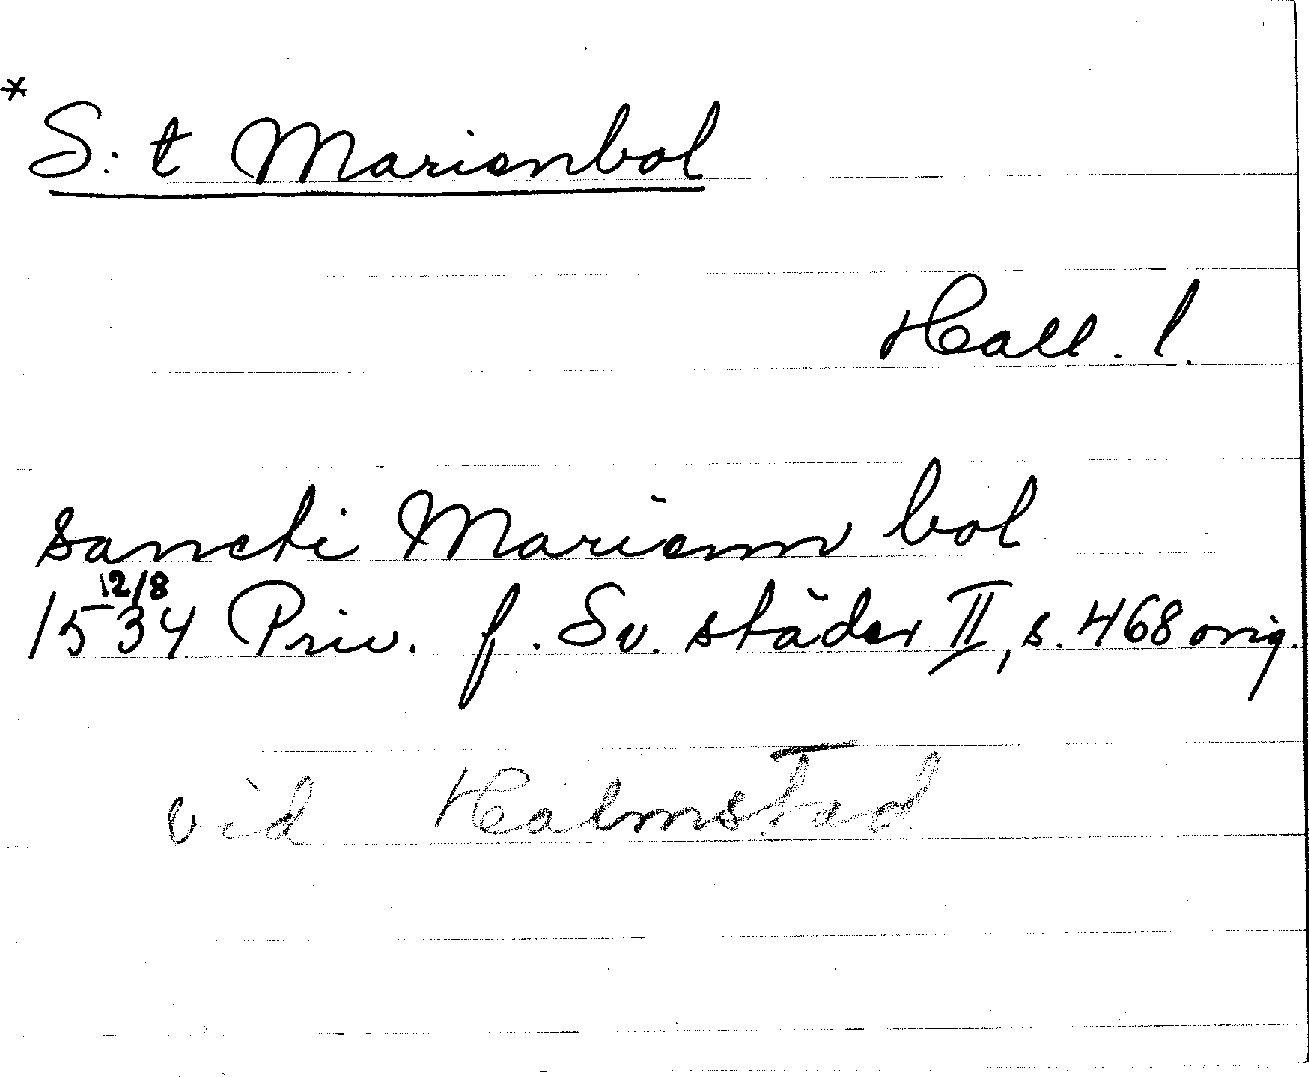 *
S:t Marienbol
Hall. l.
sancti Marienn bol
12/8
1534 Priv. f. Sv. städer II, s. 468 orig.
vid Halmstad